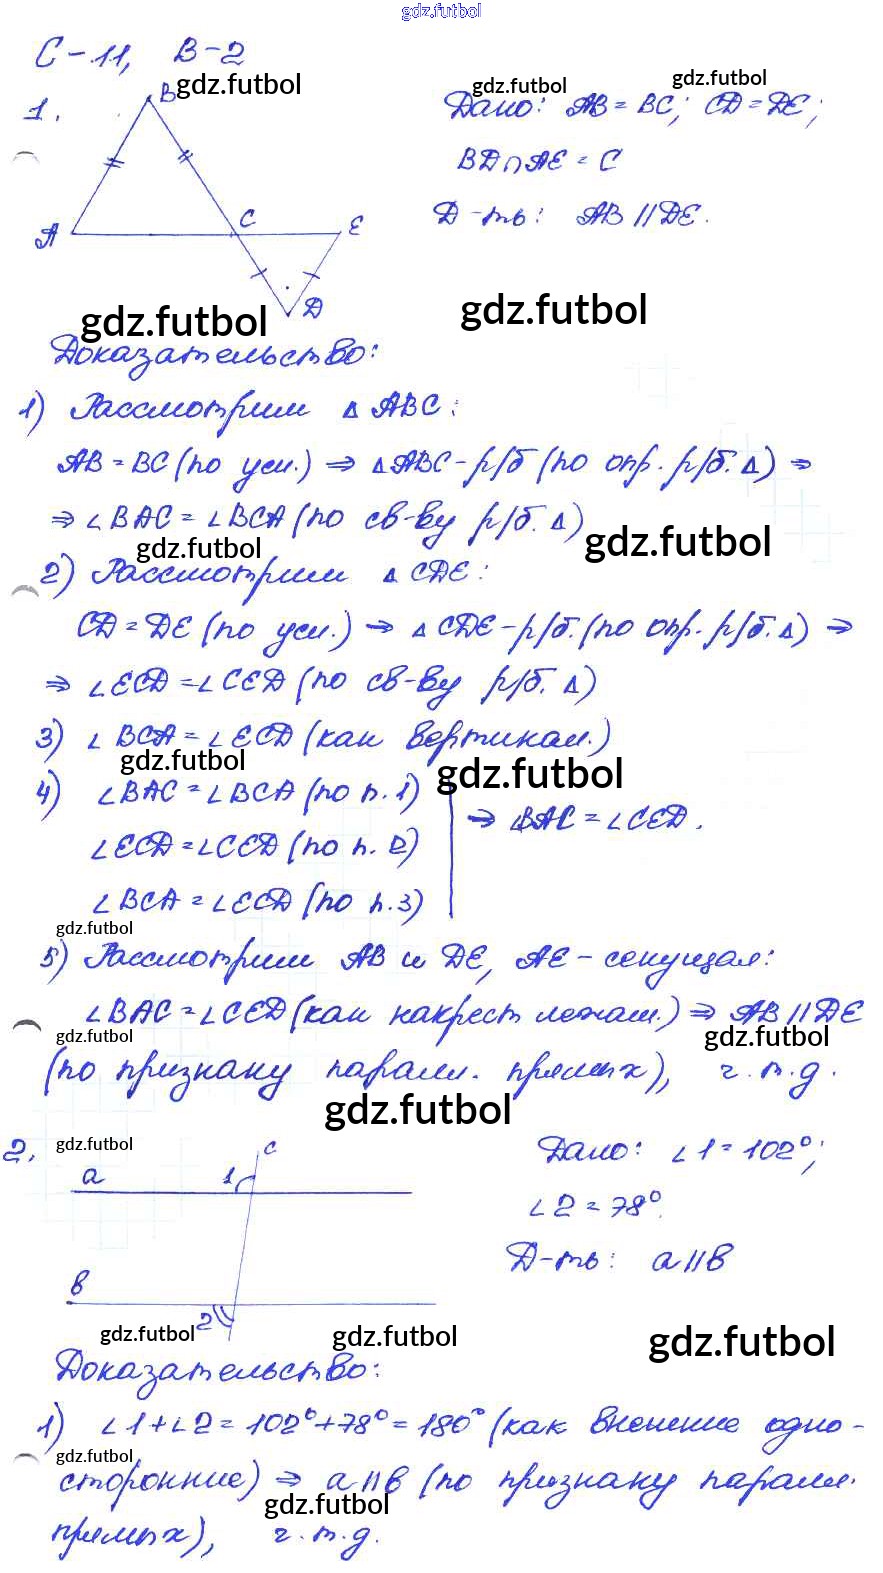 gdz.futbol
С-11, В-2
gdz.futbol
1.
B
Дано: AB = BC; CD = DE;
gdz.futbol
gdz.futbol
BD∩AE = C
A
C
E
Д-ть: AB || DE.
D
gdz.futbol
gdz.futbol
Доказательство:
1) Рассмотрим Δ ABC:
AB = BC (по усл.) ⇒ ΔABC - р/б (по опр. р/б. Δ) ⇒
⇒ ∠BAC = ∠BCA (по св-ву р/б. Δ)
gdz.futbol
gdz.futbol
2) Рассмотрим Δ CDE:
CD = DE (по усл.) ⇒ Δ CDE - р/б. (по опр. р/б. Δ) ⇒
⇒ ∠ECD = ∠CED (по св-ву р/б. Δ)
3) ∠BCA = ∠ECD (как вертикал.)
gdz.futbol
gdz.futbol
4) ∠BAC = ∠BCA (по п. 1)
∠ECD = ∠CED (по п. 2)
⇒ ∠BAC = ∠CED.
∠BCA = ∠ECD (по п. 3)
gdz.futbol
5) Рассмотрим AB и DE, AE - секущая:
∠BAC = ∠CED (как накрест лежащ.) ⇒ AB || DE
gdz.futbol
gdz.futbol
(по признаку паралл. прямых), ч.т.д.
gdz.futbol
2.
gdz.futbol
a
1
c
Дано: ∠1 = 102°;
∠2 = 78°.
Д-ть: a || b
b
2
gdz.futbol
gdz.futbol
gdz.futbol
Доказательство:
1) ∠1 + ∠2 = 102° + 78° = 180° (как внешние одно-
gdz.futbol
сторонние) ⇒ a || b (по признаку паралл.
gdz.futbol
прямых), ч.т.д.